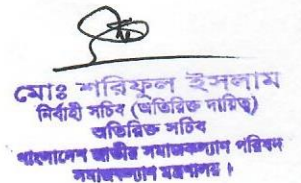 মোঃ শরিফুল ইসলাম
নির্বাহী সচিব (অতিরিক্ত দায়িত্ব)
অতিরিক্ত সচিব
বাংলাদেশ জাতীয় সমাজকল্যাণ পরিষদ
সমাজকল্যাণ মন্ত্রণালয় ।